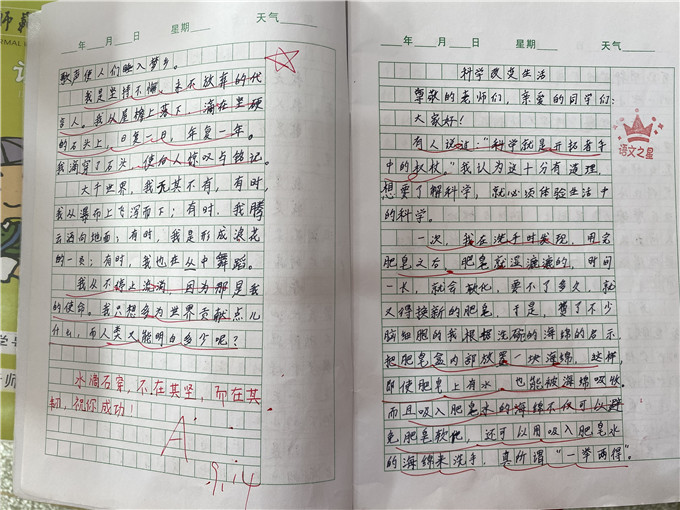 年 月 日 星期 天气
歌声使人们进入梦乡。
我是坚持不懈、永不放弃的代
言人。我从屋檐上落下，滴在坚硬
的石头上，日复一日，年复一年。
我滴穿了石头，使给人惊叹与铭记。
大千世界，我无奇不有，有时，
我从瀑布上飞泻而下；有时，我腾
云涌向地面；有时，我是形成浪花
的一员；有时，我也在丛中舞蹈。
我从不停止流淌，因为那是我
的使命。我只想多为世界贡献点儿
什么，而人类又能明白多少呢？
水滴石穿，不在其坚，而在其
韧，祝你成功！
A+
9.14
年 月 日 星期 天气
科学改变生活
尊敬的老师们，亲爱的同学们：
大家好！
有人说过：“科学就是开拓者手
中的权杖。”我认为这十分有道理，
想要了解科学，就必须体验生活中
的科学。
语文之星
一次，我在洗手时发现，用完
肥皂之后，肥皂就湿漉漉的，时间
一长，就会软化，要不了多久，就
又得换新的肥皂。于是，费了不少
脑细胞的我根据洗碗的海绵的启示，
把肥皂盒内部放置一块海绵，这样，
即使肥皂上有水，也能被海绵吸收。
而且吸入肥皂水的海绵不仅可以避
免肥皂软化，还可以用吸入肥皂水
的海绵来洗手，真所谓“一举两得”。